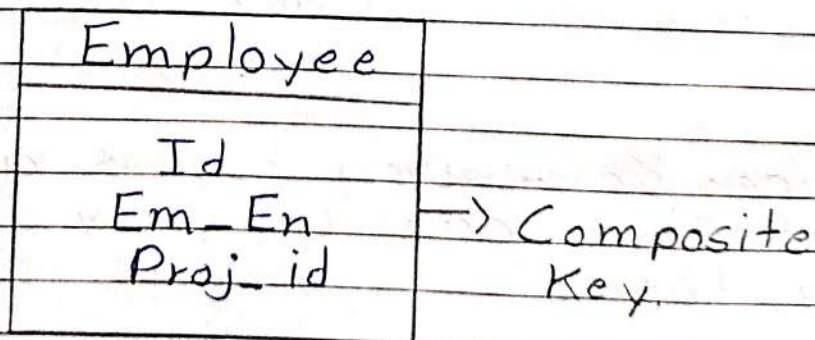 Employee
Id
Em_En
Proj_id
→ Composite
Key.